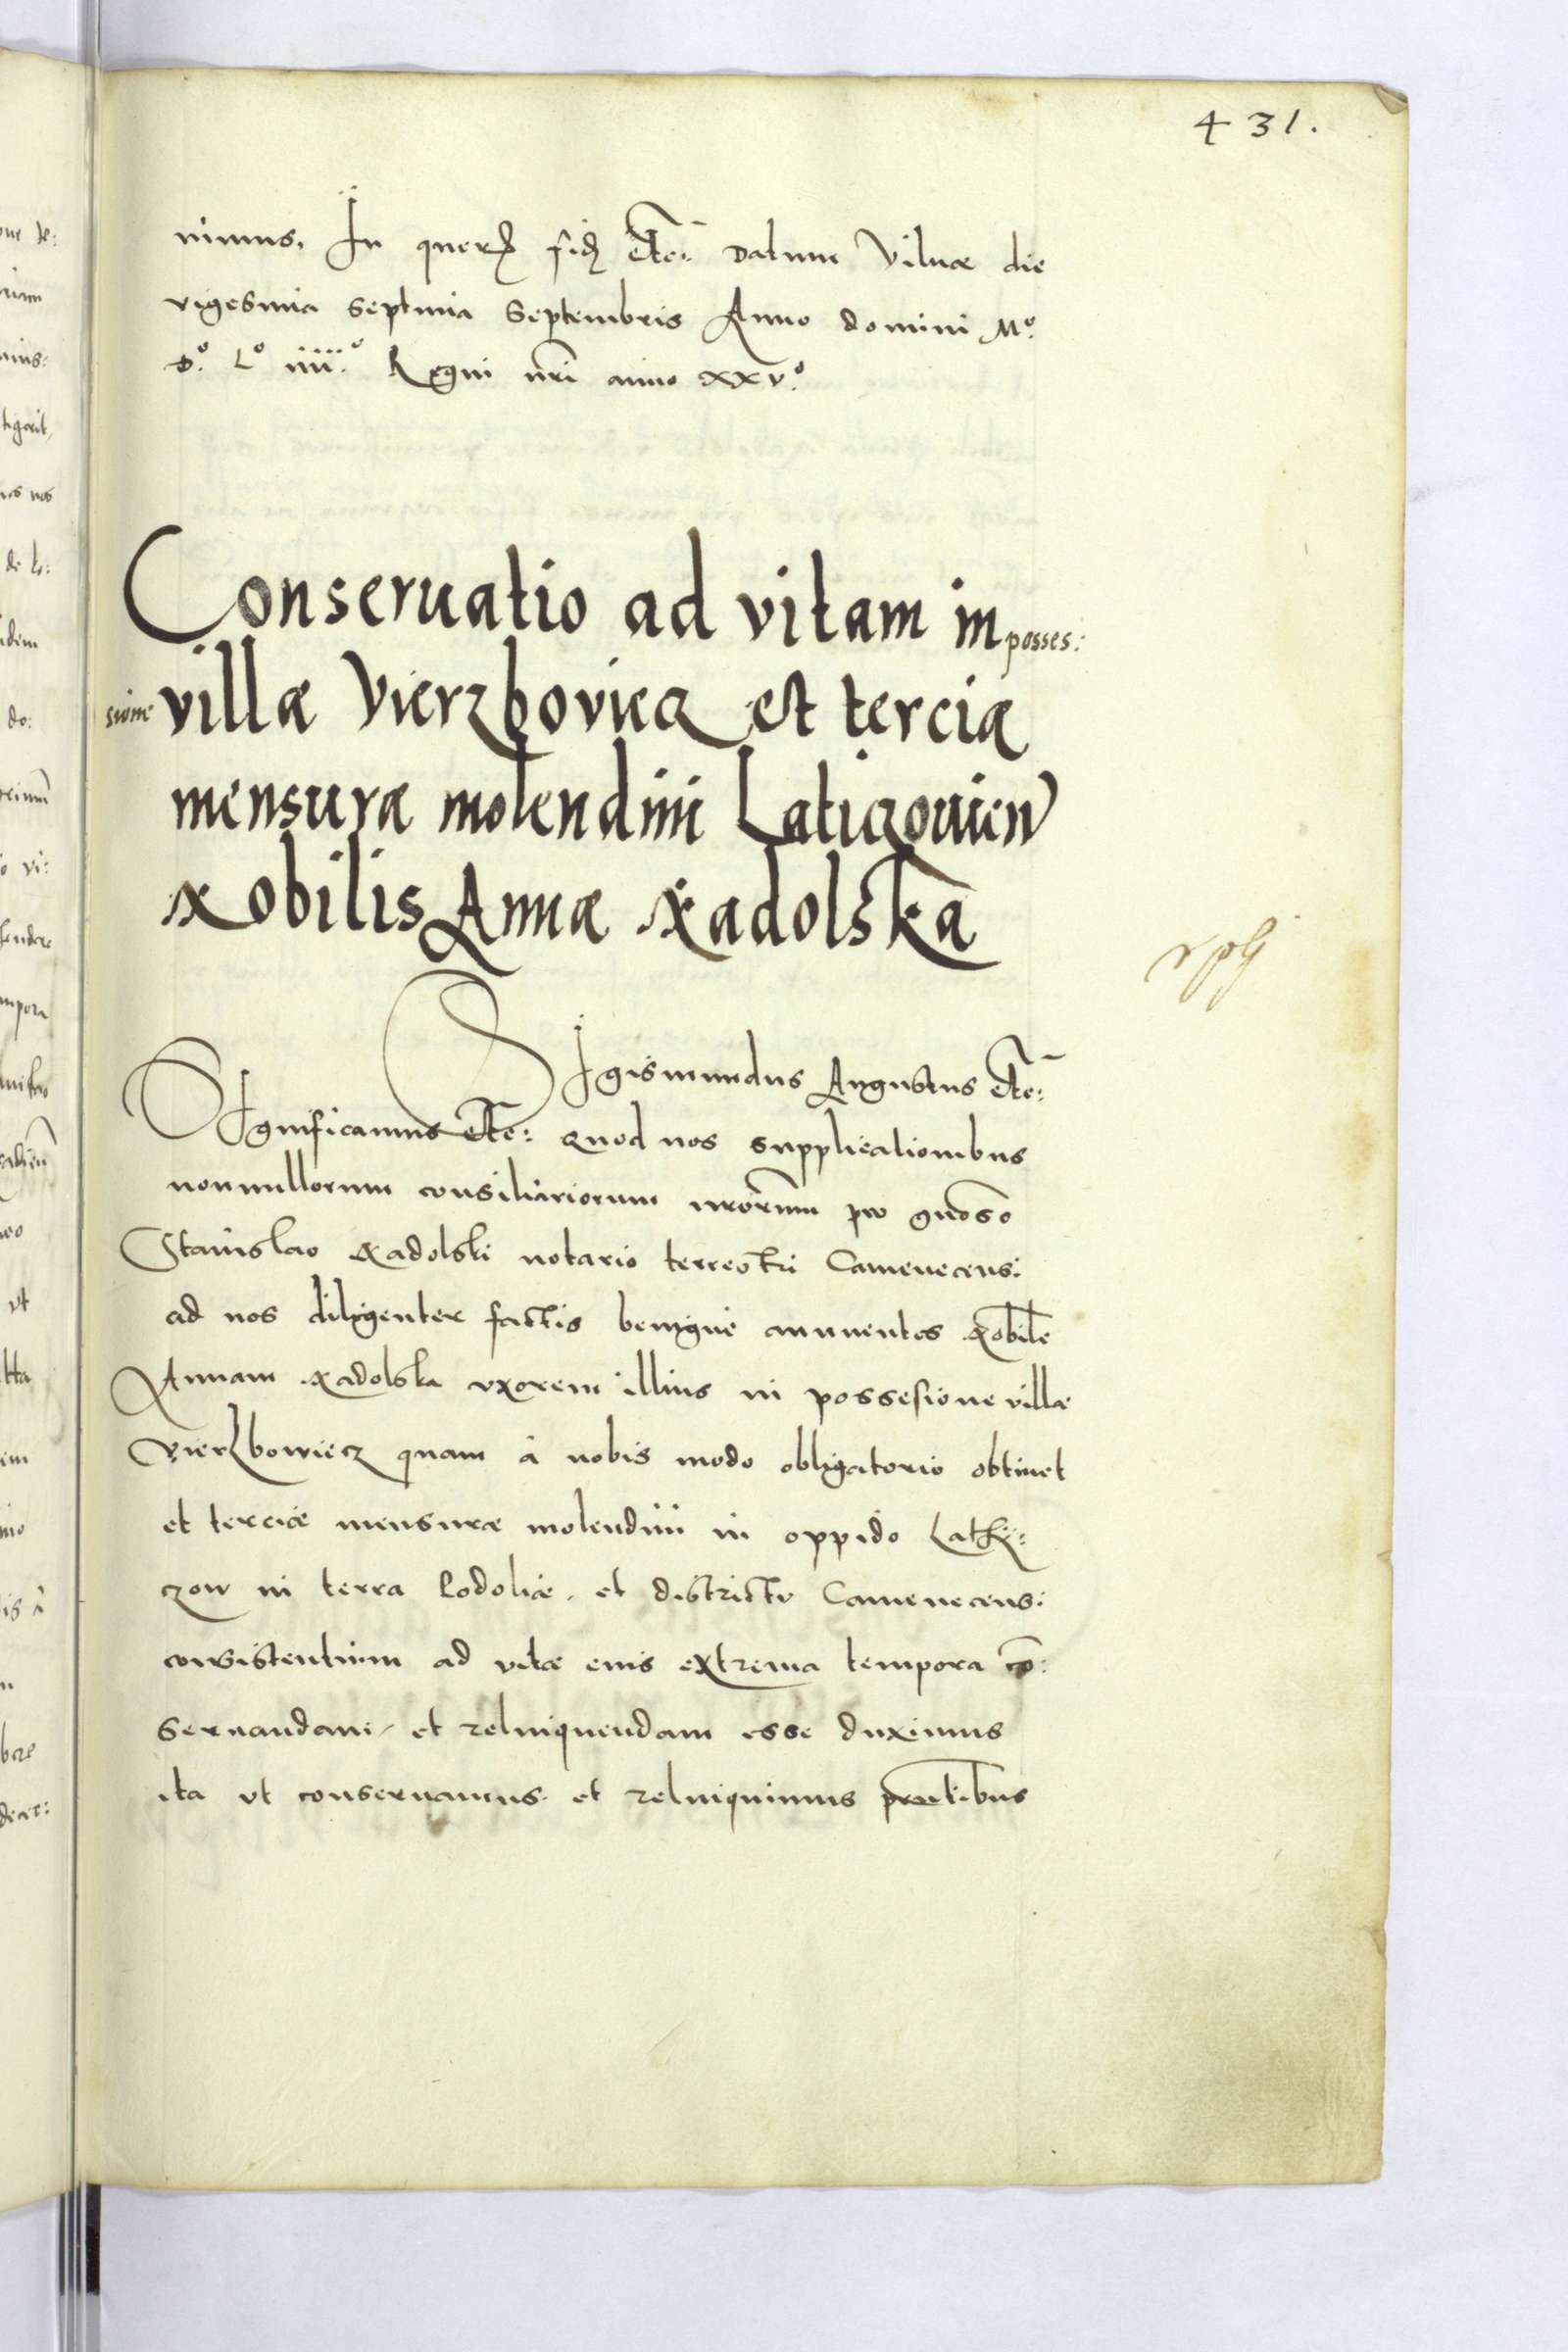 431.
nimus. In quer fid etc: Datum Vilnæ die
vigesima septima Septembris Anno domini Mº.
Dº. Lº iiiiº. Regni nri anno xxvº.
Conseruatio ad vitam in posses:
sione villæ Vierzboviecz et terciæ
mensuræ molendini Laticzouien
Nobilis Annæ Nadolska
SIgismundus Augustus etc:
SIgnificamus etc: quod nos supplicationibus
nonnullorum consiliariorum nrorum pro gnoso
Stanislao Nadolski notario terrestri Camenecensi
ad nos diligenter factis benigne annuentes Nobile
Annam Nadolska vxorem illius in possesione villæ
Vierzbowiecz quam à nobis modo obligatorio obtinet
et terciæ mensuræ molendini in oppido Lathi:
czow in terra Podoliæ, et districtu Camenecensi
consistentium ad vitæ eius extrema tempora co:
seruandam, et relinquendam esse duximus
ita vt conseruamus et relinquimus prntibus